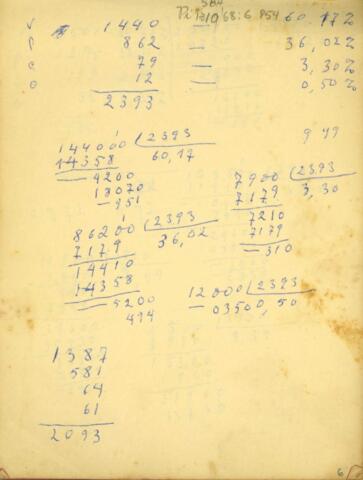 SB4
Pi 1210/68:6.P54
V 1440 — 60.17%
P 862 — 36,02%
C 79 — 3,30%
O 12 — 0,50%
2393
949
144000 2393
14358 60,17
4200
18070
951
7900 2393
7179 3,30
7210
7179
310
86200 2393
7179 36,02
14410
14358
5200
494
12000 2393
03500,50
1387
581
64
61
2093
6